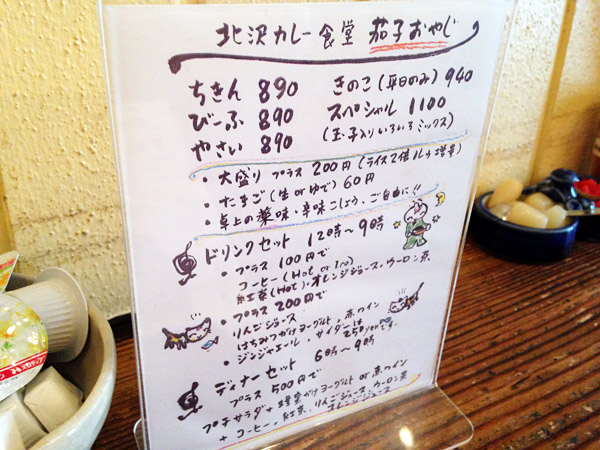 北沢カレー食堂 茄子おやじ
ちきん 890
きのこ(平日のみ) 940
びーふ 890
スペシャル 1100
やさい 890
(玉子入りいろいろミックス)
・大盛り プラス 200円 (ライス2倍ルウ増量)
・たまご (生 or ゆで) 60円
・卓上の薬味・辛味こしょう、ご自由に!!
ドリンクセット 12時〜9時
・プラス 100円で
コーヒー (Hot or Ice)
紅茶(Hot)・オレンジジュース、ウーロン茶
・プラス 200円で
りんごジュース
はちみつがけヨーグルト・赤ワイン
・ジンジャエール・サイダーは
250円です。
ディナーセット 6時〜9時
プラス 500円で
プチサラダ + 蜂蜜がけヨーグルト or 赤ワイン
+ コーヒー、紅茶、りんごジュース、ウーロン茶
オレンジジュース